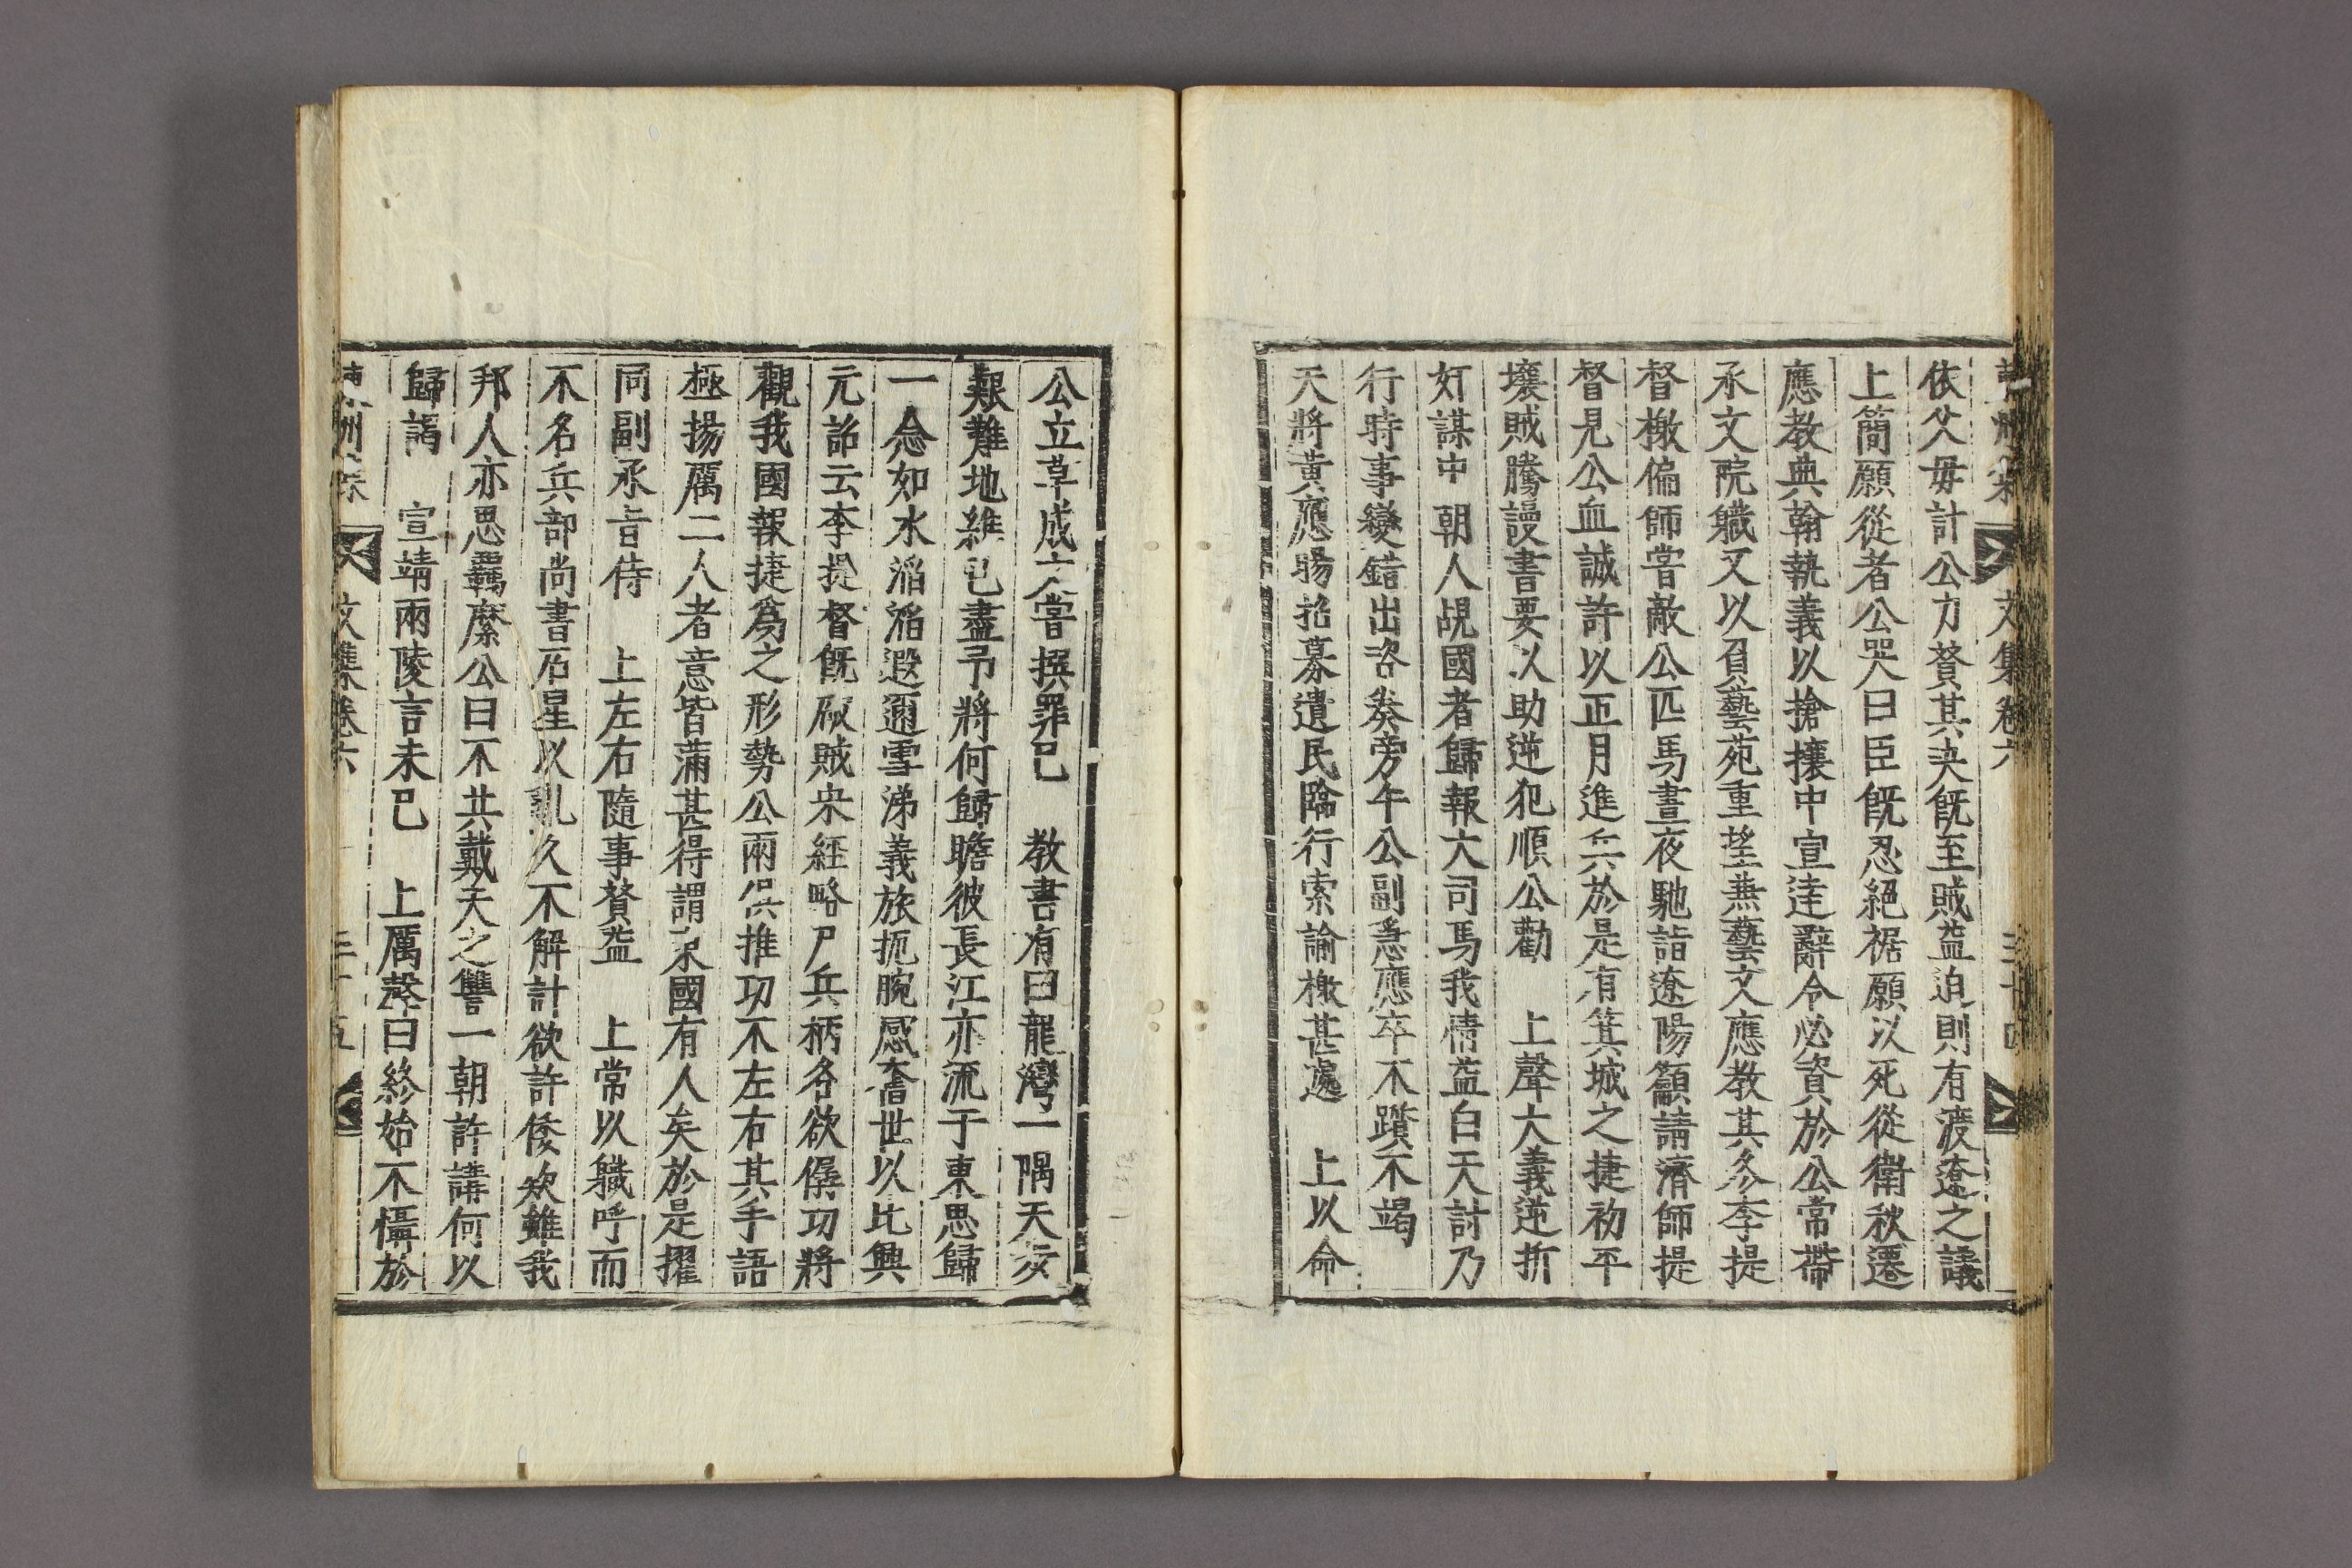 文集卷六 三十四
依父母計公力贊其決旣至賊益迫則有渡遼之議
上簡願從者公哭曰臣旣忍絕裾願以死從衛秋還
應教典翰執義以搶攘中宣達辭令必資於公常帶
承文院職又以負藝苑重望兼藝文應教其冬李提
督檄偏師嘗敵公匹馬晝夜馳詣遼陽籲請濟師提
督見公血誠許以正月進兵於是有箕城之捷初平
壤賊騰謾書要以助逆犯順公勸 上聲大義逆折
奸謀中 朝人覘國者歸報大司馬我情益白天討乃
行時事變錯出咨奏旁午公副急應卒不躓不竭
天將黃應暘招募遺民臨行索諭檄甚遽 上以命
公立草成文嘗撰罪己 敎書有曰龍灣一隅天步
艱難地維已盡予將何歸瞻彼長江亦流于東思歸
一念如水滔滔遐邇雪涕義旅扼腕感奮世以比興
元詔云李提督旣破賊宋經略尸兵柄各欲侈功將
觀我國報捷爲之形勢公兩俱推功不左右其手語
極揚厲二人者意皆滿甚得謂宋國有人矣於是擢
同副承旨侍 上左右隨事贊益 上常以職呼而
不名兵部尚書石星以亂久不解計欲許倭欵雖我
邦人亦思羈縻公曰不共戴天之讐一朝許講何以
歸謁 宣靖兩陵言未已 上厲聲曰終始不懾於
文集卷六 三十五